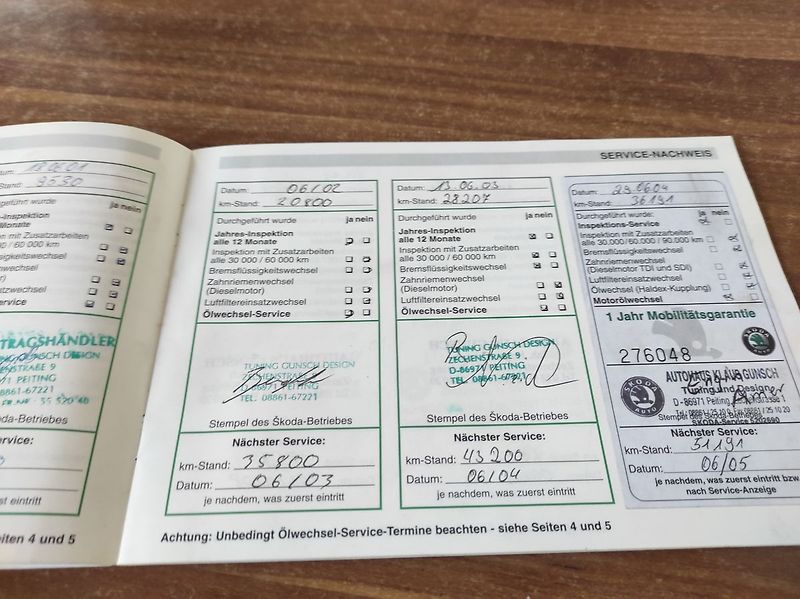 SERVICE-NACHWEIS
18.06.01
Stand: 9530
ja nein
-Inspektion
Monate
ktion mit Zusatzarbeiten
00 / 60 000 km
sflüssigkeitswechsel
wechsel
ervice
TRAGSHÄNDLER
DESIGN
ZECHENSTRAßE 9
PEITING
TEL. 08861-67221
Škoda-Betriebes
Service:
st eintritt
eiten 4 und 5
Datum: 06/02
km-Stand: 20800
Durchgeführt wurde ja nein
Jahres-Inspektion
alle 12 Monate
Inspektion mit Zusatzarbeiten
alle 30 000 / 60 000 km
Bremsflüssigkeitswechsel
Zahnriemenwechsel
(Dieselmotor)
Luftfiltereinsatzwechsel
Ölwechsel-Service
TUNING GUNSCH DESIGN
ZECHENSTRAßE 9
D-86971 PEITING
TEL. 08861-67221
Stempel des Škoda-Betriebes
Nächster Service:
km-Stand: 35800
Datum: 06/03
je nachdem, was zuerst eintritt
Datum: 13.06.03
km-Stand: 28207
Durchgeführt wurde ja nein
Jahres-Inspektion
alle 12 Monate
Inspektion mit Zusatzarbeiten
alle 30 000 / 60 000 km
Bremsflüssigkeitswechsel
Zahnriemenwechsel
(Dieselmotor)
Luftfiltereinsatzwechsel
Ölwechsel-Service
TUNING GUNSCH DESIGN
ZECHENSTRAßE 9
D-86971 PEITING
TEL. 08861-67221
Stempel des Škoda-Betriebes
Nächster Service:
km-Stand: 43200
Datum: 06/04
je nachdem, was zuerst eintritt
Datum: 29.06.04
km-Stand: 36191
Durchgeführt wurde ja nein
Inspektions-Service
Inspektion mit Zusatzarbeiten
alle 30.000/60.000 / 90.000 km
Bremsflüssigkeitswechsel
Zahnriemenwechsel
(Dieselmotor TDI und SDI)
Luftfiltereinsatzwechsel
Ölwechsel (Haldex-Kupplung)
Motorölwechsel
1 Jahr Mobilitätsgarantie
276048
SKODA
SKODA
AUTO
AUTOHAUS KLAUS GUNSCH
Tuning und Design
D - 86971 Peiting
Stempel des Škoda-Betriebes
SKODA-Service
Nächster Service:
km-Stand: 51191
Datum: 06/05
je nachdem, was zuerst eintritt bzw.
nach Service-Anzeige
Achtung: Unbedingt Ölwechsel-Service-Termine beachten - siehe Seiten 4 und 5